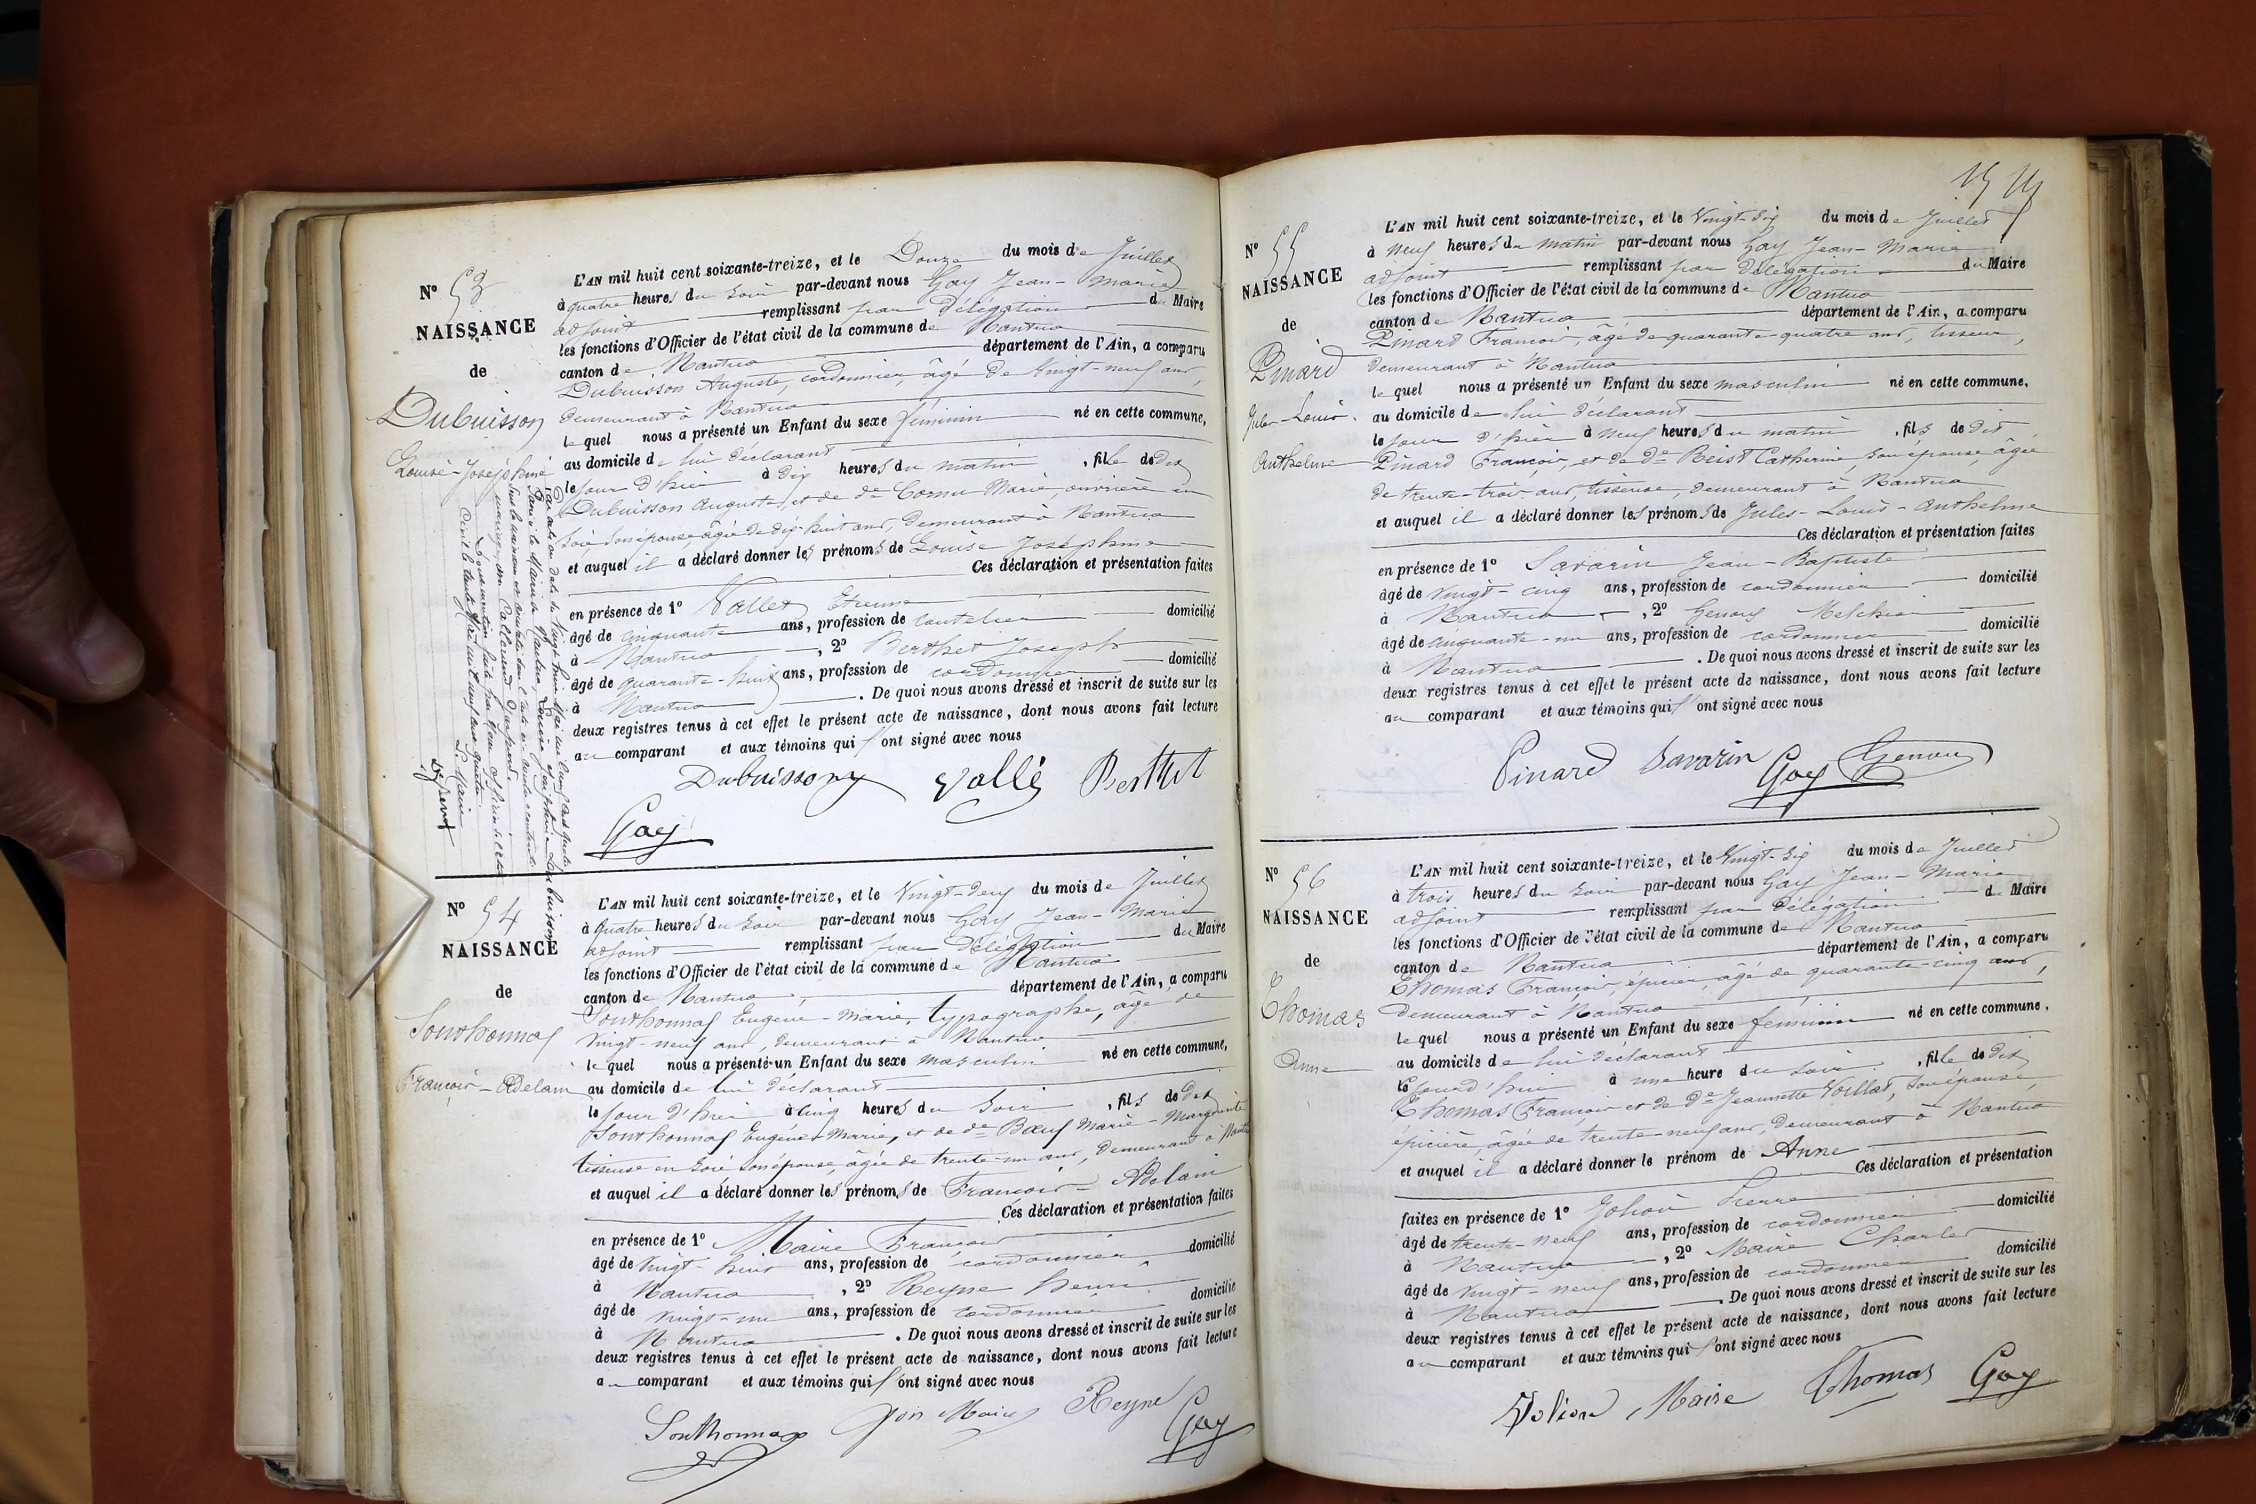 N° 53
NAISSANCE
de
Dubuisson
Louise-Joséphine
L'AN mil huit cent soixante-treize, et le Douze du mois de Juillet
à quatre heures du soir par-devant nous Gay Jean-Marie
adjoint remplissant par délégation du Maire
les fonctions d'Officier de l'état civil de la commune de Nantua
canton de Nantua département de l'Ain, a comparu
Dubuisson Auguste, cordonnier, âgé de vingt-neuf ans,
demeurant à Nantua
lequel nous a présenté un Enfant du sexe féminin né en cette commune,
au domicile de lui déclarant
le jour d'hier à dix heures du matin, fille de dit
Dubuisson Auguste, et de de Cornu Marie, ouvrière en
soie son épouse, âgée de dix-huit ans, demeurant à Nantua
et auquel il a déclaré donner les prénoms de Louise Joséphine
Ces déclaration et présentation faites
en présence de 1° Vallet Etienne
âgé de cinquante ans, profession de coutelier domicilié
à Nantua, 2° Berthet Joseph
âgé de quarante-huit ans, profession de cordonnier domicilié
à Nantua. De quoi nous avons dressé et inscrit de suite sur les
deux registres tenus à cet effet le présent acte de naissance, dont nous avons fait lecture
au comparant et aux témoins qui ont signé avec nous
Dubuisson Vallé Berthet
Gay
N° 54
NAISSANCE
de
Sonthonnas
François-Adelain
L'AN mil huit cent soixante-treize, et le Vingt-deux du mois de Juillet
à quatre heures du soir par-devant nous Gay Jean-Marie
adjoint remplissant par délégation du Maire
les fonctions d'Officier de l'état civil de la commune de Nantua
canton de Nantua, département de l'Ain, a comparu
Sonthonnas Eugène-Marie, typographe, âgé de
vingt-neuf ans, demeurant à Nantua
lequel nous a présenté un Enfant du sexe masculin né en cette commune,
au domicile de lui déclarant
le jour d'hier à cinq heures du soir, fils de dit
Sonthonnas Eugène-Marie, et de de Bœuf Marie-Marguerite
tisseuse en soie son épouse, âgée de trente-un ans, demeurant à Nantua
et auquel il a déclaré donner les prénoms de François-Adelain
Ces déclaration et présentation faites
en présence de 1° Maire François
âgé de vingt-huit ans, profession de cordonnier domicilié
à Nantua, 2° Reyne Henri
âgé de vingt-un ans, profession de cordonnier domicilié
à Nantua. De quoi nous avons dressé et inscrit de suite sur les
deux registres tenus à cet effet le présent acte de naissance, dont nous avons fait lecture
au comparant et aux témoins qui ont signé avec nous
Sonthonnas Maire Reyne
Gay
N° 55
NAISSANCE
de
Pinard
Jules-Louis
Anthelme
L'AN mil huit cent soixante-treize, et le Vingt-six du mois de Juillet
à neuf heures du matin par-devant nous Gay Jean-Marie
adjoint remplissant par délégation du Maire
les fonctions d'Officier de l'état civil de la commune de Nantua
canton de Nantua département de l'Ain, a comparu
Pinard François, âgé de quarante-quatre ans, tisseur,
demeurant à Nantua
lequel nous a présenté un Enfant du sexe masculin né en cette commune,
au domicile de lui déclarant
le jour d'hier à neuf heures du matin, fils de dit
Pinard François, et de De Reist Catherine, son épouse, âgée
de trente-trois ans, tisseuse, demeurant à Nantua
et auquel il a déclaré donner les prénoms de Jules-Louis-Anthelme
Ces déclaration et présentation faites
en présence de 1° Savarin Jean-Baptiste
âgé de vingt-cinq ans, profession de cordonnier domicilié
à Nantua, 2° Melchior
âgé de cinquante-un ans, profession de cordonnier domicilié
à Nantua. De quoi nous avons dressé et inscrit de suite sur les
deux registres tenus à cet effet le présent acte de naissance, dont nous avons fait lecture
au comparant et aux témoins qui ont signé avec nous
Pinard Savarin Gay Genou
N° 56
NAISSANCE
de
Thomas
Anne
L'AN mil huit cent soixante-treize, et le Vingt-six du mois de Juillet
à trois heures du soir par-devant nous Gay Jean-Marie
adjoint remplissant par délégation du Maire
les fonctions d'Officier de l'état civil de la commune de Nantua
canton de Nantua département de l'Ain, a comparu
Thomas François, épicier, âgé de quarante-cinq ans,
demeurant à Nantua
lequel nous a présenté un Enfant du sexe féminin né en cette commune.
au domicile de lui déclarant
le jourd'hui à une heure du soir, fille de dit
Thomas François et de De Jeannette Voillat, son épouse,
épicière, âgée de trente-neuf ans, demeurant à Nantua
et auquel il a déclaré donner le prénom de Anne
Ces déclaration et présentation
faites en présence de 1° Jolion Pierre
âgé de trente-neuf ans, profession de cordonnier domicilié
à Nantua, 2° Maire Charles
âgé de vingt-neuf ans, profession de cordonnier domicilié
à Nantua. De quoi nous avons dressé et inscrit de suite sur les
deux registres tenus à cet effet le présent acte de naissance, dont nous avons fait lecture
au comparant et aux témoins qui ont signé avec nous
Jolion Maire Thomas Gay